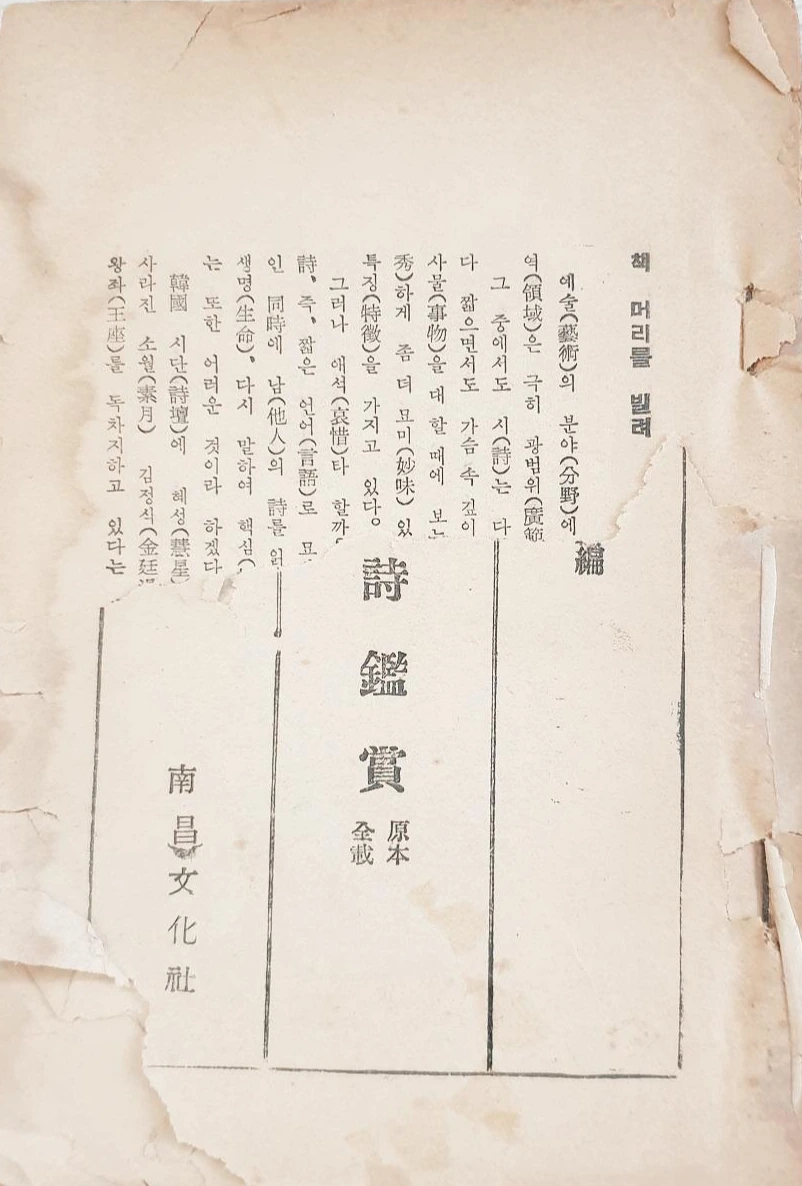 책 머리를 빌려
예술(藝術)의 분야(分野)에
역(領域)은 극히 광범위(廣範
그 중에서도 시(詩)는 다
다 짧으면서도 가슴 속 깊이
사물(事物)을 대 할 때에 보는
秀)하게 좀 더 묘미(妙味) 있
특징(特徵)을 가지고 있다。
그러나 애석(哀惜)타 할까
詩、즉、짧은 언어(言語)로 묘
인 同時에 남(他人)의 詩를 읽
생명(生命)、다시 말하여 핵심(
는 또한 어려운 것이라 하겠다
韓國 시단(詩壇)에 혜성(慧星)
사라진 소월(素月) 김정식(金廷湜
왕좌(王座)를 독차지하고 있다는
編
詩鑑賞
原本
全載
南昌文化社